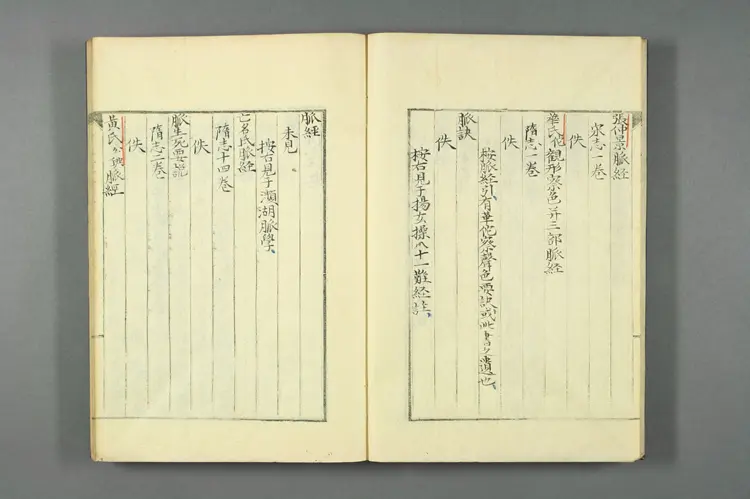 張仲景脈経
宋志一巻
佚
華氏佗觀形察色并三部脈経
隋志一巻
佚
按脈経引有華佗察聲色要訣或此書之遺也
脈訣
佚
按右見于揚玄操八十一難経註
脈経
未見
按右見于瀕湖脈學
亡名氏脈経
隋志十四巻
佚
脈生死要訣
隋志二巻
佚
黃氏 脈経